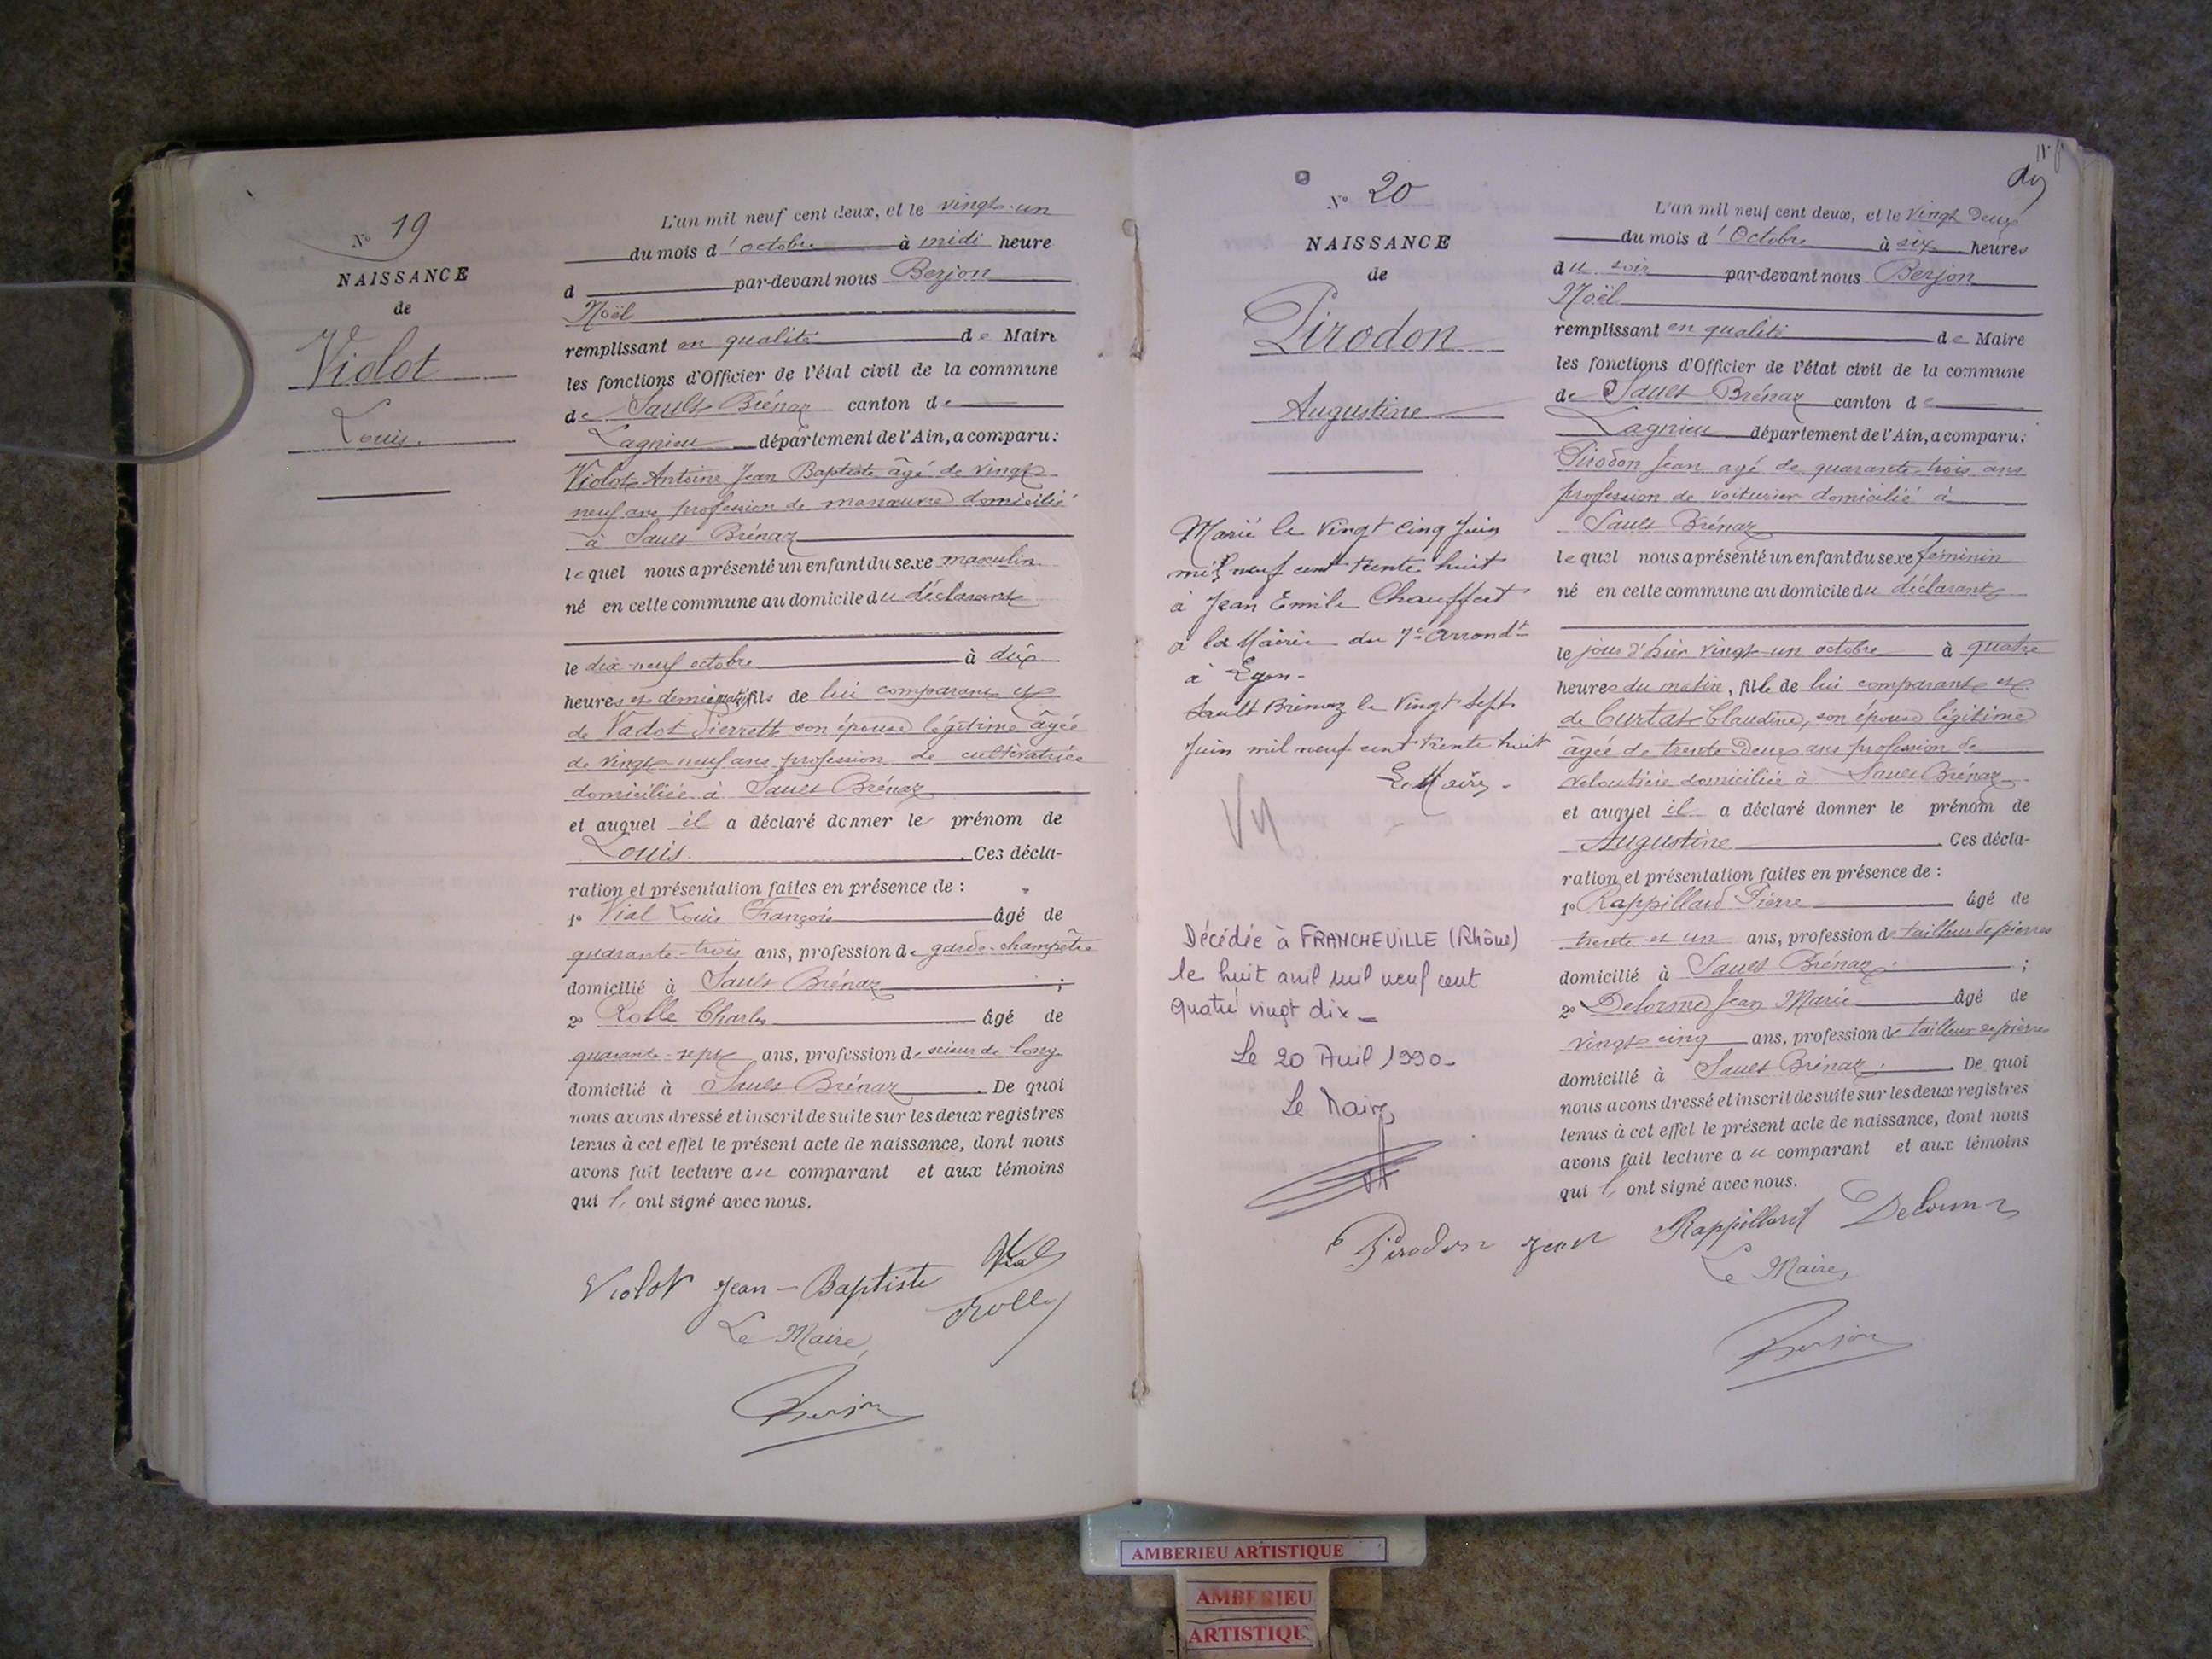 Nº 19
NAISSANCE
de
Violot
Louis.
L'an mil neuf cent deux, et le vingt-un
du mois d'octobre à midi heure
d par-devant nous Berjon
Noël
remplissant en qualité de Maire
les fonctions d'Officier de l'état civil de la commune
de Sault Brénaz canton de
Lagnieu département de l'Ain, a comparu:
Violot Antoine Jean Baptiste âgé de vingt
neuf ans profession de manœuvre domicilié
à Sault Brénaz
lequel nous a présenté un enfant du sexe masculin
né en cette commune au domicile du déclarant
le dix-neuf octobre à dix
heures et demie fils de lui comparant et
de Vadot Pierrette son épouse légitime âgée
de vingt-neuf ans profession de cultivatrice
domiciliée à Sault Brénaz
et auquel il a déclaré donner le prénom de
Louis. Ces décla-
ration et présentation faites en présence de :
1º Vial Louis François âgé de
quarante-trois ans, profession de garde-champêtre
domicilié à Sault Brénaz ;
2º Rolle Charles âgé de
quarante-sept ans, profession de scieur de long
domicilié à Sault Brénaz. De quoi
nous avons dressé et inscrit de suite sur les deux registres
tenus à cet effet le présent acte de naissance, dont nous
avons fait lecture au comparant et aux témoins
qui l'ont signé avec nous.
Violot Jean-Baptiste Vial
Rolle
Le Maire,
Berjon
Nº 20
NAISSANCE
de
Pirodon
Augustine
Marié le vingt cinq Juin
mil neuf cent trente huit
à Jean Emile Chauffert
à la Mairie du 7e Arrondt
à Lyon-
Sault Brénaz le vingt sept
Juin mil neuf cent trente huit
Le Maire.
Décédée à FRANCHEVILLE (Rhône)
le huit avril mil neuf cent
quatre vingt dix
Le 20 Avril 1990
Le Maire,
L'an mil neuf cent deux, et le vingt deux
du mois d'Octobre à six heures
du soir par-devant nous Berjon
Noël
remplissant en qualité de Maire
les fonctions d'Officier de l'état civil de la commune
de Sault Brénaz canton de
Lagnieu département de l'Ain, a comparu:
Pirodon Jean agé de quarante-trois ans
profession de voiturier domicilié à
Sault Brénaz
lequel nous a présenté un enfant du sexe feminin
né en cette commune au domicile du déclarant
le jour d'hier vingt-un octobre à quatre
heures du matin, fille de lui comparant et
de Curtat Claudine, son épouse légitime
âgée de trente-deux ans profession de
veloutière domiciliée à Sault Brénaz
et auquel il a déclaré donner le prénom de
Augustine. Ces décla-
ration et présentation faites en présence de :
1º Rappillard Pierre âgé de
trente et un ans, profession de tailleur de pierres
domicilié à Sault Brénaz ;
2º Delorme Jean Marie âgé de
vingt cinq ans, profession de tailleur de pierres
domicilié à Sault Brénaz. De quoi
nous avons dressé et inscrit de suite sur les deux registres
tenus à cet effet le présent acte de naissance, dont nous
avons fait lecture au comparant et aux témoins
qui l'ont signé avec nous.
Pirodon Jean Rappillard Delorme
Le Maire,
Berjon
AMBERIEU ARTISTIQUE
AMBERIEU
ARTISTIQUE